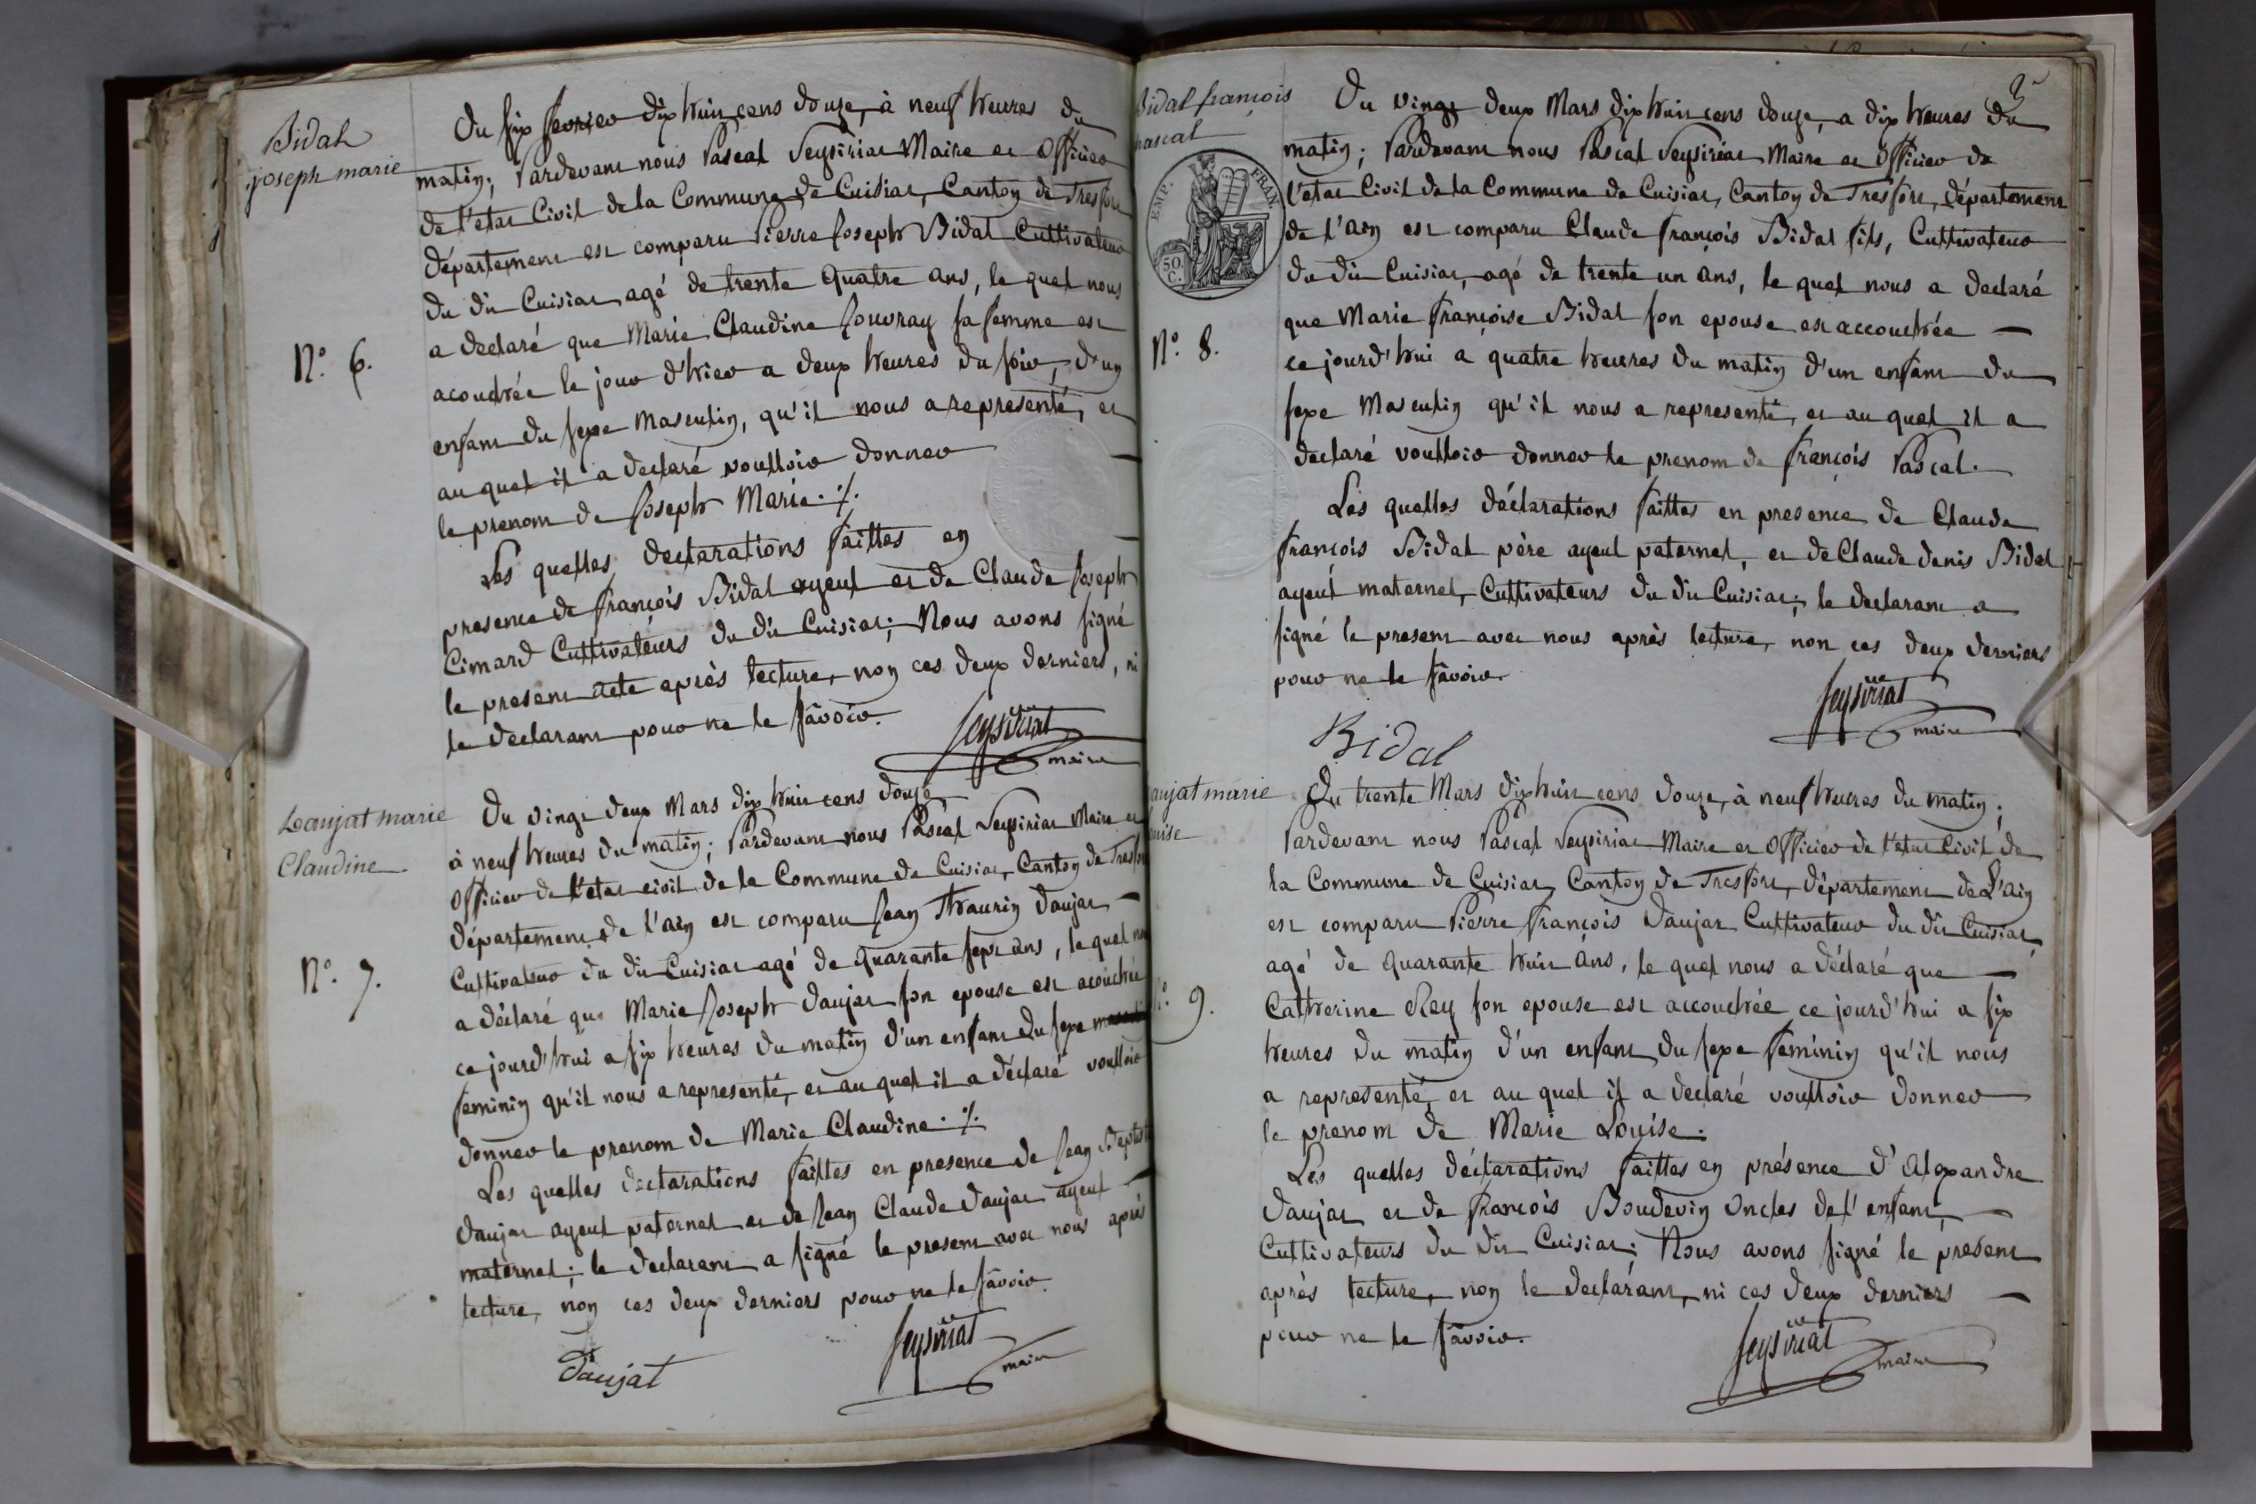 Bidal
joseph marie
N.o 6.
Du six fevrier dix huit cens douze, à neuf heures du
matin; Pardevant nous Pascal Seysiriat Maire et Officier
de l'etat Civil de la Commune de Cuisiat, Canton de Tresfort
département est comparu Pierre Joseph Bidal Cultivateur
du dit Cuisiat, agé de trente quatre ans, le quel nous
a declaré que Marie Claudine Jouvray sa femme est
acouchée le jour d'hier a deux heures du soir, d'un
enfant du sexe masculin, qu'il nous a representé, et
au quel il a declaré voulloir donner
le prenom de Joseph Marie ./.
Les quelles declarations faittes en
presence de françois Bidal ayeul et de Claude Joseph
Cimard Cultivateurs du dit Cuisiat; Nous avons signé
le present acte après lecture, non ces deux derniers, ni
le declarant pour ne le sàvoir.
Seysiriat
maire
Daujat marie
Claudine
N.o 7.
Du vingt deux Mars dix huit cens douze
à neuf heures du matin; Pardevant nous Pascal Seysiriat Maire et
Officier de l'etat civil de la Commune de Cuisiat, Canton de Tresfort
département de l'ain est comparu Jean Thaurin Daujat
Cultivateur du dit Cuisiat agé de quarante sept ans, le quel nous
a déclaré que Marie Joseph Daujat son epouse est acouchée
ce jourd'hui a six heures du matin d'un enfant du sexe
feminin qu'il nous a representé, et au quel il a déclaré voulloir
donner le prenom de Marie Claudine ./.
Les quelles declarations faittes en presence de Jean Baptiste
Daujat ayeul paternel et de Jean Claude Daujat ayeul
maternel; le declarant a signé le present avec nous après
lecture, non ces deux derniers pour ne le sàvoir.
Daujat
Seysiriat
maire
Bidal françois
pascal
EMP. FRAN.
50 C.
N.o 8.
Du vingt deux Mars dix huit cens douze, a dix heures du
matin; Pardevant nous Pascal Seysiriat Maire et Officier de
l'etat Civil de la Commune de Cuisiat, Canton de Tresfort, département
de l'ain est comparu Claude françois Bidal fils, Cultivateur
du dit Cuisiat, agé de trente un ans, le quel nous a declaré
que Marie françoise Bidal son epouse est accouchée
ce jourd'hui a quatre heures du matin d'un enfant du
sexe Masculin qu'il nous a representé, et au quel il a
declaré voulloir donner le prenom de françois Pascal.
Les quelles déclarations faittes en presence de Claude
françois Bidal père ayeul paternel, et de Claude denis Bidal
ayeul maternel, Cultivateurs du dit Cuisiat; le declarant a
signé le present avec nous après lecture, non ces deux derniers
pour ne le sàvoir.
Seysiriat
maire
Bidal
aujat marie
ouise
9.
Du trente Mars dix huit cens douze, à neuf heures du matin;
Pardevant nous Pascal Seysiriat Maire et Officier de l'etat Civil de
la Commune de Cuisiat, Canton de Tresfort, département de L'ain
est comparu Pierre françois Daujat Cultivateur du dit Cuisiat,
agé de quarante huit ans, le quel nous a déclaré que
Catherine Rey son epouse est accouchée ce jourd'hui a six
heures du matin d'un enfant du sexe feminin qu'il nous
a representé, et au quel il a declaré voulloir donner
le prenom de Marie Louise.
Les quelles déclarations faittes en présence d'Alexandre
Daujat et de françois Boudevin Oncles de l'enfant,
Cultivateurs du dit Cuisiat; Nous avons signé le present
après lecture, non le declarant, ni ces deux derniers
pour ne le sàvoir.
Seysiriat
maire